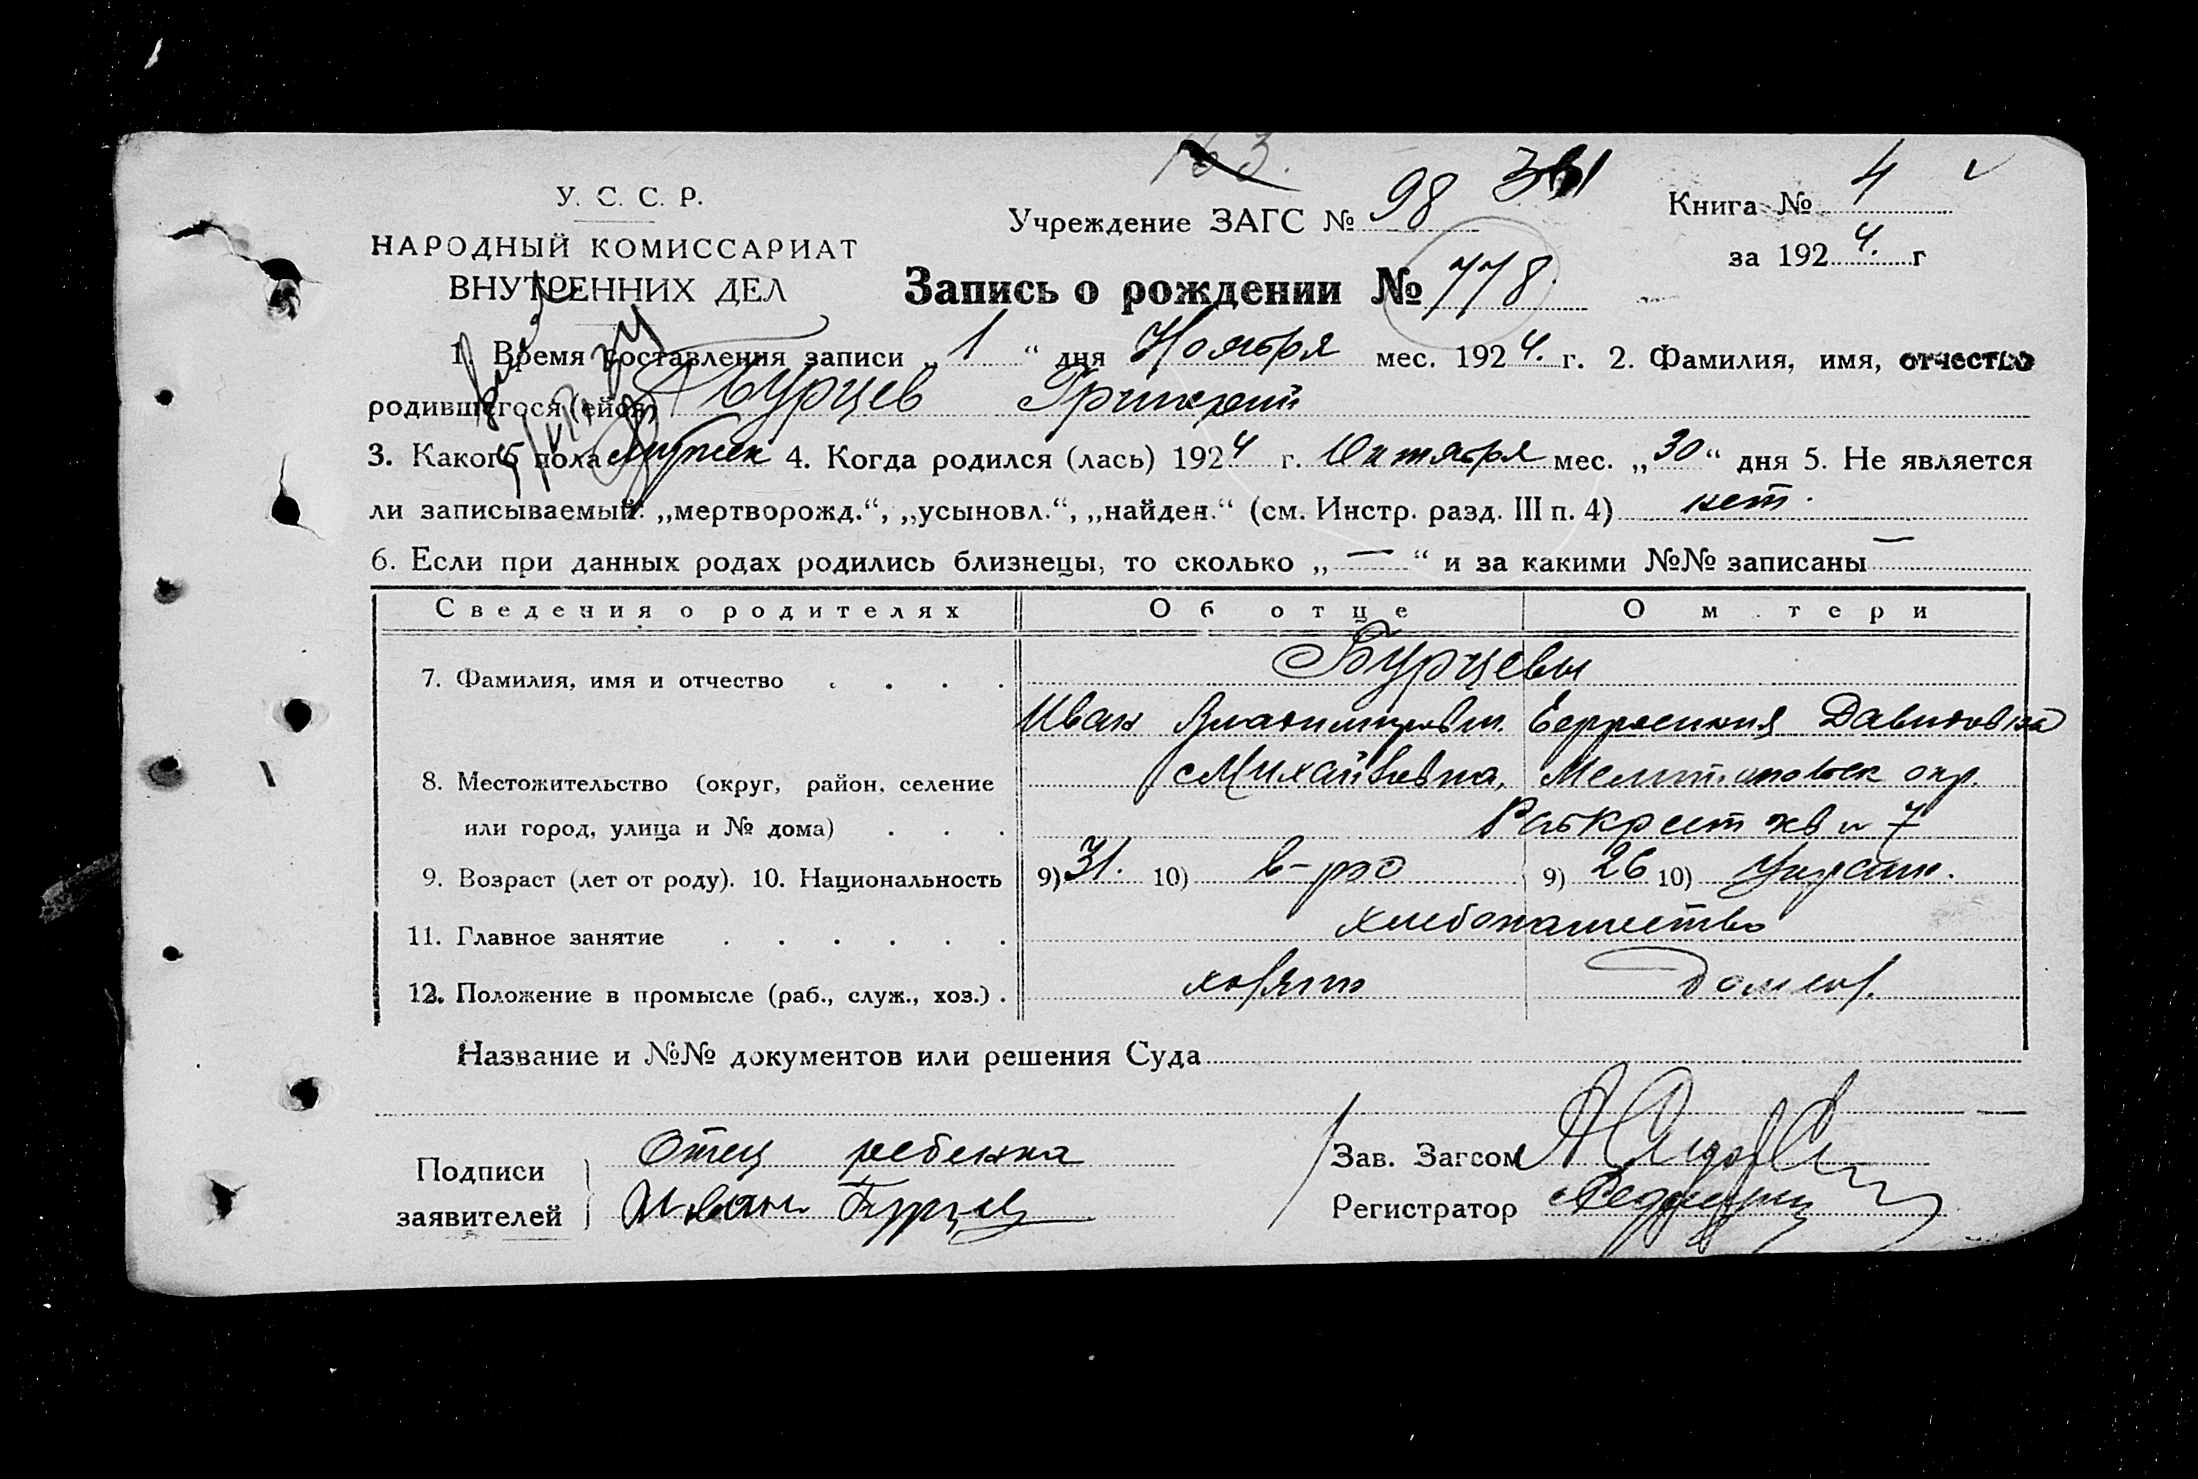 163.
У. С. С. Р.
НАРОДНЫЙ КОМИССАРИАТ
ВНУТРЕННИХ ДЕЛ
Учреждение ЗАГС № 98
Книга № 4
за 1924. г
Запись о рождении № 778
1. Время составления записи „ 1 “ дня Ноября мес. 1924. г. 2. Фамилия, имя, отчество
родившегося (ейся) Бурцев Григорий
3. Какого пола мужск 4. Когда родился (лась) 1924 г. Октября мес. „30“ дня 5. Не является
ли записываемый: „мертворожд.“, „усыновл.“, „найден.“ (см. Инстр. разд. III п. 4) нет.
6. Если при данных родах родились близнецы, то сколько „ — “ и за какими №№ записаны —
Сведения о родителях Об отце О м тери
7. Фамилия, имя и отчество Бурцевы
Иван Владимиров. Ефросиния Давидовна
8. Местожительство (округ, район, селение Михайловка, Мелитопольск окр.
или город, улица и № дома)
9. Возраст (лет от роду). 10. Национальность 9) 31. 10) в-рос 9) 26 10) Украин.
11. Главное занятие хлебопашество
12. Положение в промысле (раб., служ., хоз.) . хозяин домхоз.
Название и №№ документов или решения Суда
Подписи заявителей
Отец ребенка
Иван Бурцев
Зав. Загсом
Регистратор